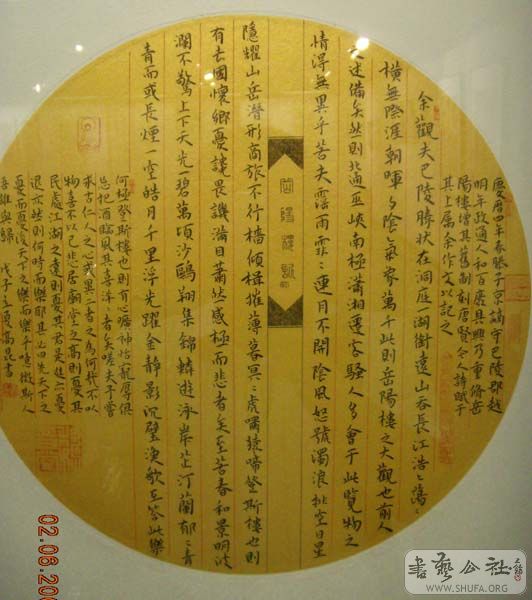 慶曆四年春滕子京謫守巴陵郡越
明年政通人和百廢具興乃重脩岳
陽樓增其舊制刻唐賢今人詩賦于
其上屬余作文以記之
余觀夫巴陵勝狀在洞庭一湖銜遠山吞長江浩〻蕩〻
橫無際涯朝暉夕陰氣象萬千此則岳陽樓之大觀也前人
之述備矣然則北通巫峽南極瀟湘遷客騷人多會于此覽物之
情得無異乎若夫霪雨霏〻連月不開陰風怒號濁浪排空日星
岳陽樓記
隱耀山岳潛形商旅不行檣傾楫摧薄暮冥〻虎嘯猿啼登斯樓也則
有去國懷鄉憂讒畏譏滿目蕭然感極而悲者矣至若春和景明波
瀾不驚上下天光一碧萬頃沙鷗翔集錦鱗游泳岸芷汀蘭郁〻青
青而或長煙一空皓月千里浮光躍金靜影沉璧漁歌互答此樂
何極登斯樓也則有心曠神怡寵辱俱
忘把酒臨風其喜洋〻者矣嗟夫予嘗
求古仁人之心或異二者之為何哉不以
物喜不以己悲居廟堂之高則憂其
民處江湖之遠則憂其君是進亦憂
退亦然則何時而樂耶其必曰先天下之
憂而憂後天下之樂而樂乎噫微斯人
吾誰與歸 戊子之夏高昆書
02.06.200
書藝公社
WWW.SHUFA.ORG